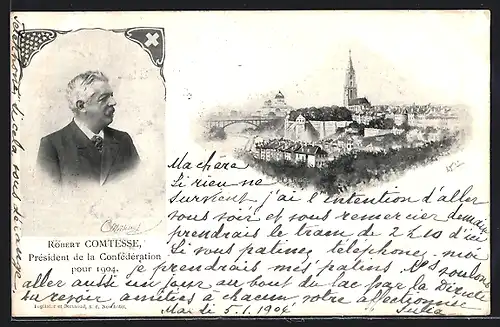 ROBERT COMTESSE,
Président de la Confédération
pour 1904.
Ma chère
Si rien ne
survient, j'ai l'intention d'aller
vous voir et vous remercier demain
prendrais le tram de 2 h 10 d'ici
Si vous patinez, téléphonez moi
je prendrais mes patins. Ns voulons
aller aussi un jour au bout du lac par la Directe
au revoir amitiés à chacun, votre affectionnée
Julia
Mardi 5.1.1904